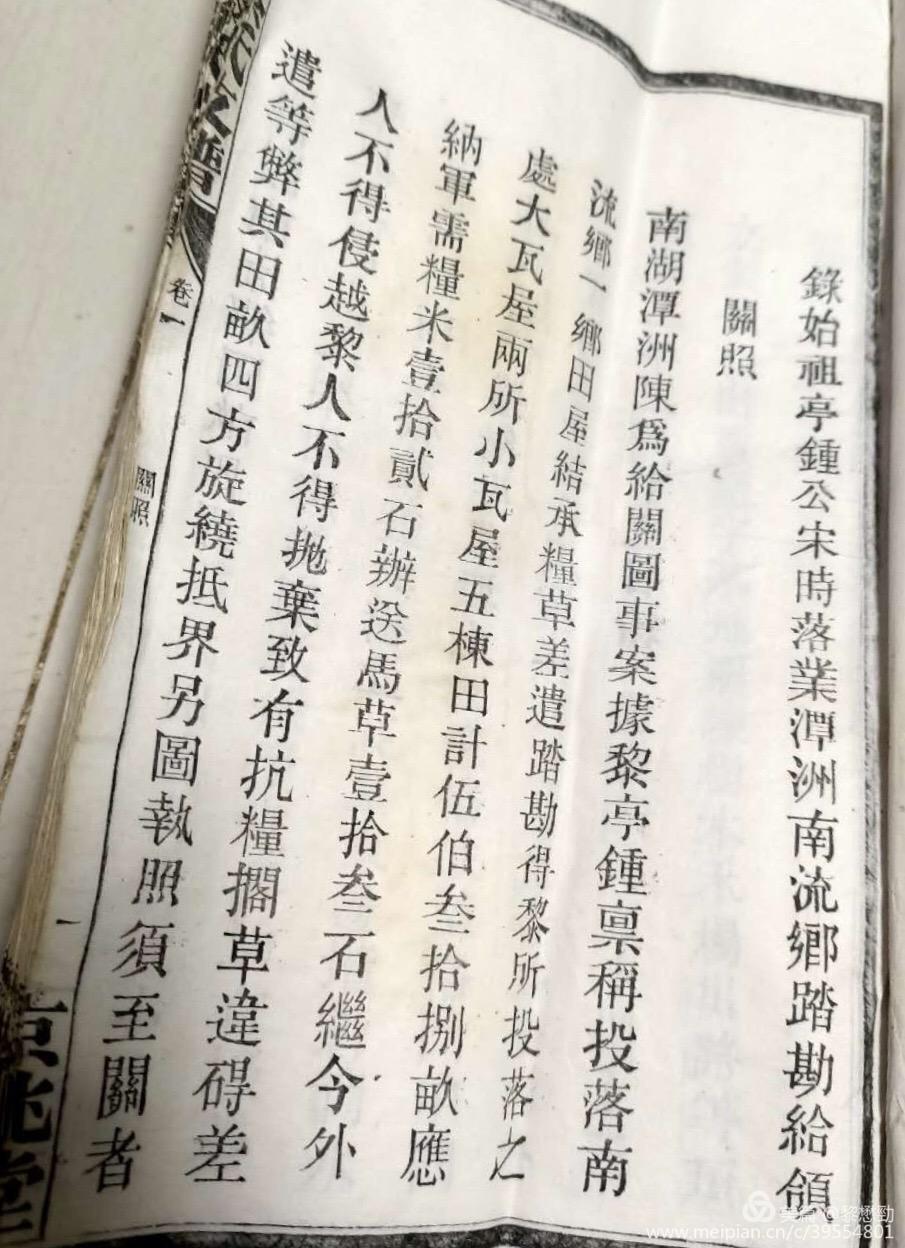 錄始祖亭鍾公宋時落業潭洲南流鄉踏勘給領
關照
南湖潭洲陳爲給關圖事案據黎亭鍾禀稱投落南
流鄉一鄉田屋結承糧草差遣踏勘得黎所投落之
處大瓦屋兩所小瓦屋五棟田計伍伯叁拾捌畝應
納軍需糧米壹拾貳石辦送馬草壹拾叁石繼今外
人不得侵越黎人不得拋棄致有抗糧擱草違碍差
遣等弊其田畝四方旋繞抵界另圖執照須至關者
譜
卷一
關照
一
堂
美篇 @黎懋勁
www.meipian.cn/c/39554801